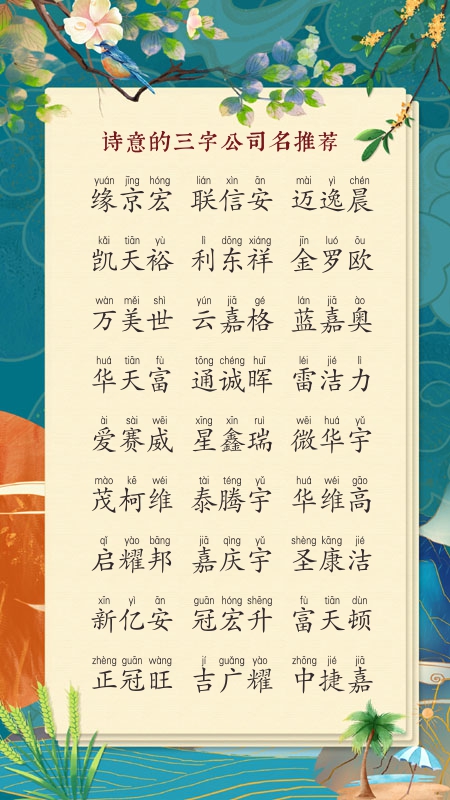 诗意的三字公司名推荐
yuán jīng hóng lián xìn ān mài yì chén
缘京宏 联信安 迈逸晨
kǎi tiān yù lì dōng xiáng jīn luó ōu
凯天裕 利东祥 金罗欧
wàn měi shì yún jiā gé lán jiā ào
万美世 云嘉格 蓝嘉奥
huá tiān fù tōng chéng huī léi jié lì
华天富 通诚晖 雷洁力
ài sài wēi xīng xīn ruì wēi huá yǔ
爱赛威 星鑫瑞 微华宇
mào kē wéi tài téng yǔ huá wéi gāo
茂柯维 泰腾宇 华维高
qǐ yào bāng jiā qìng yǔ shèng kāng jié
启耀邦 嘉庆宇 圣康洁
xīn yì ān guān hóng shēng fù tiān dùn
新亿安 冠宏升 富天顿
zhèng guān wàng jí guǎng yào zhōng jié jiā
正冠旺 吉广耀 中捷嘉